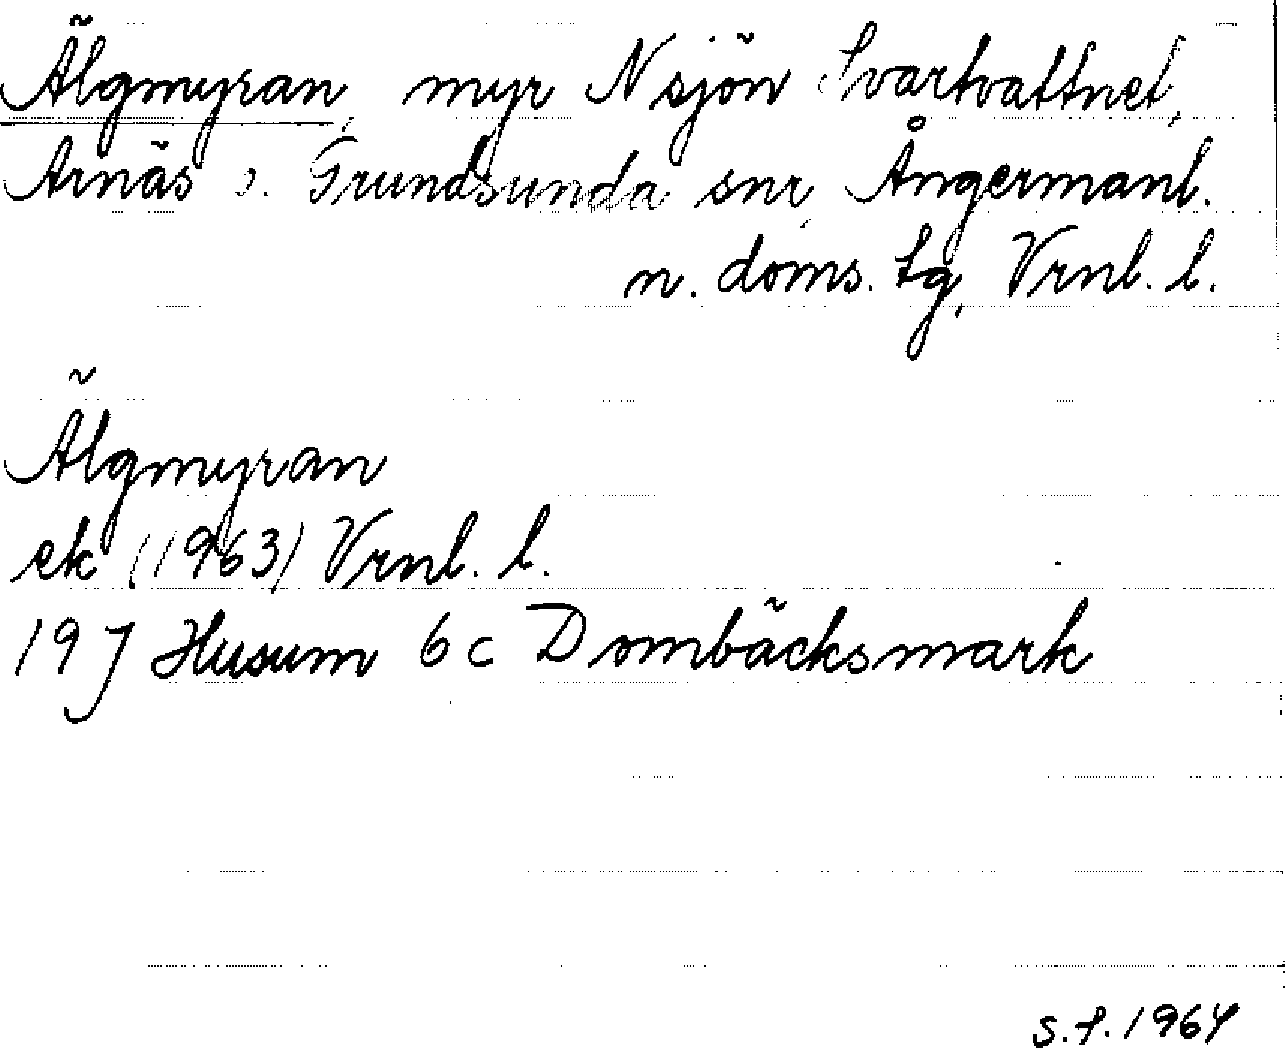 Älgmyran, myr N sjön Svartvattnet,
Arnäs o. Grundsunda snr, Ångermanl.
n. doms. tg, Vrnl. l.
Älgmyran
ek (1963) Vrnl. l.
19 J Husum 6 c Dombäcksmark
S.f. 1964